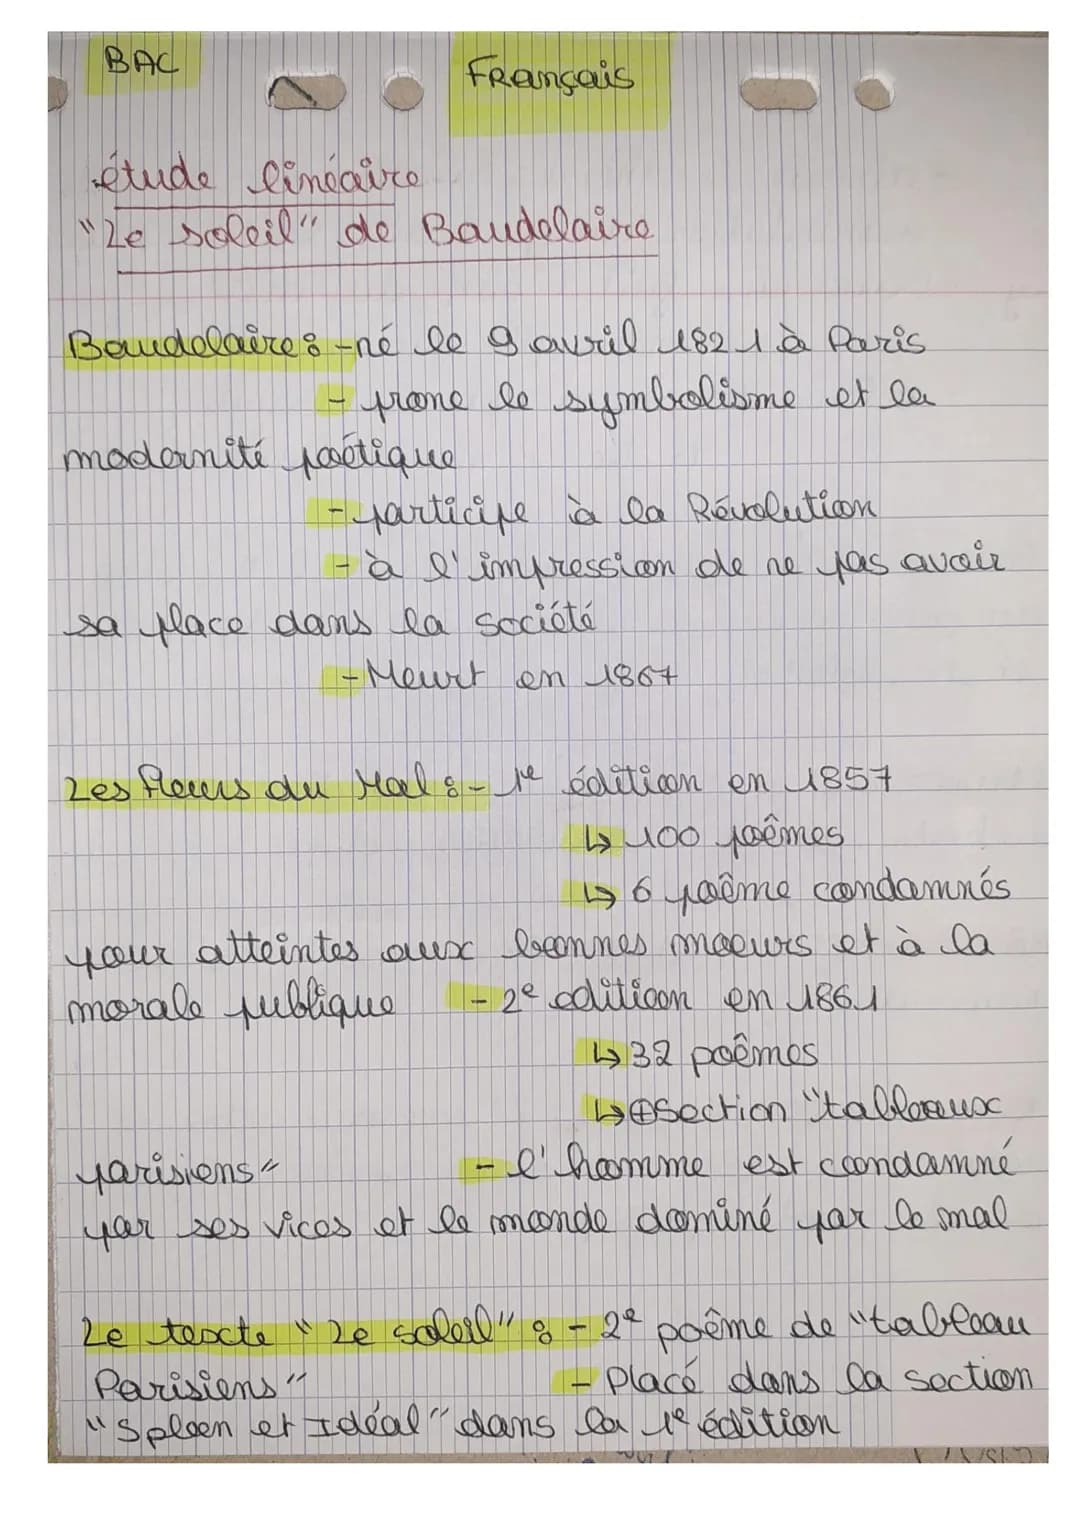 BAC
Français
étude linéaire
"Le soleil" de Baudelaire
Baudelaire : - né le 9 avril 1821 à Paris
- prone le symbolisme et la
modernité poétique
- participe à la Révolution
- à l'impression de ne pas avoir
sa place dans la société
- Meurt en 1867
Les fleurs du Mal : - 1e édition en 1857
↳ 100 poêmes
↳ 6 poême condamnés
pour atteintes aux bonnes moeurs et à la
morale publique - 2e edition en 1861
↳ 32 poêmes
↳ ⊕ section "tableaux
parisiens" - l'homme est condamné
par ses vices et le monde dominé par le mal
Le texte "Le soleil" : - 2e poême de "tableau
Parisiens" - Placé dans la section
"Spleen et Idéal" dans la 1e édition